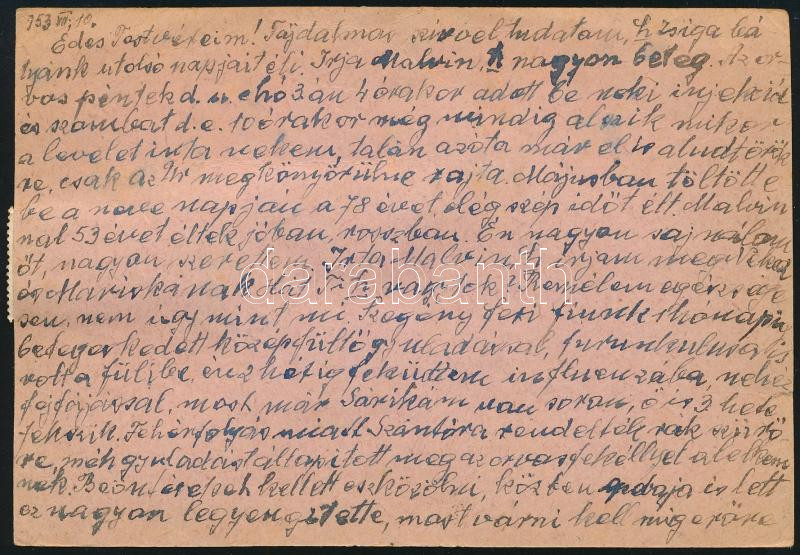 953 VII. 10.
Édes Testvéreim! Fájdalmas szivvel tudatom, h Zsiga bá
tyánk utolso napjait éli. Irja Malvin, nagyon beteg. Az or-
vos pénteken d. u. 3án 4 órakor adott be neki injekciót
és szombat d. e. 10 órakor még mindig alszik mikor
a levelet irta nekem, talán azóta már el is aludt örök
re, csak az Úr megkönyörülne rajta. Májusban töltötte
be a neve napján a 78 évet, elég szép időt élt. Malvin
nal 53 évet éltek jóban, rosszban. Én nagyon sajnálom
őt, nagyon szerettem. Irta Malvin irjam meg
és Mariskának is. Ti hogy vagytok? Remélem egészsége
sen, nem ugy mint mi. Szegény feri fiunk 5 hónapig
betegeskedett középfültőgyuladással, furunkulusa is
volt a fülibe, én 2 hétig feküdtem influenzába, nehéz
fejfájással, most már Sárikám van soron, ő is 3 hete
fekszik. Fehérfolyás miatt Szántóra rendelték rák szürő
re, méhgyuladást állapitott meg az orvos fekéllyel
nek. kellett eszközölni, közben is lett
ez nagyon legyengitette, most várni kell mig erőre
darabanth